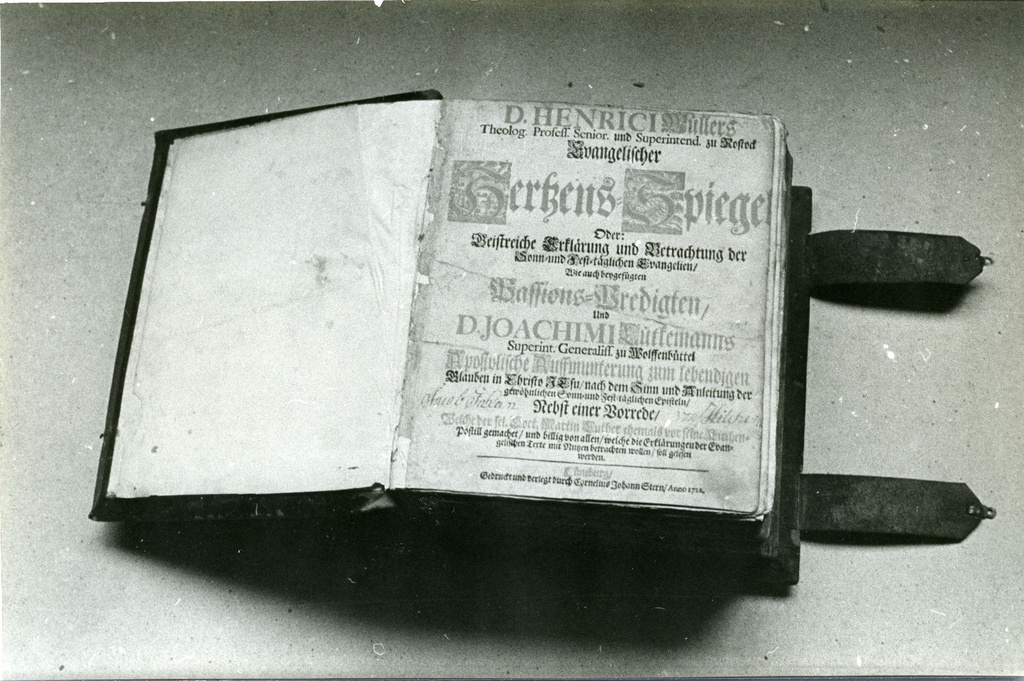 D. HENRICI Müllers
Theolog. Profess. Senior. und Superintend. zu Rostock
Evangelischer
Hertzens-Spiegel
Oder:
Geistreiche Erklärung und Betrachtung der
Sonn-und Fest-täglichen Evangelien/
Wie auch beygefügten
Passions-Predigten/
Und
D. JOACHIMI Lütkemanns
Superint. Generaliss. zu Wolffenbüttel
Apostolische Auffmunterung zum lebendigen
Glauben in Christo JEsu/ nach dem Sinn und Anleitung der
gewöhnlichen Sonn-und Fest-täglichen Episteln/
Nebst einer Vorrede/
Welche der sel. Doct. Martin Luther ehemals vor seine Kirchen-
Postill gemacht/ und billig von allen/ welche die Erklärungen der Evan-
gelischen Texte mit Nutzen betrachten wollen/ soll gelesen
werden.
Lüneburg/
Gedruckt und verlegt durch Cornelius Johann Stern/ Anno